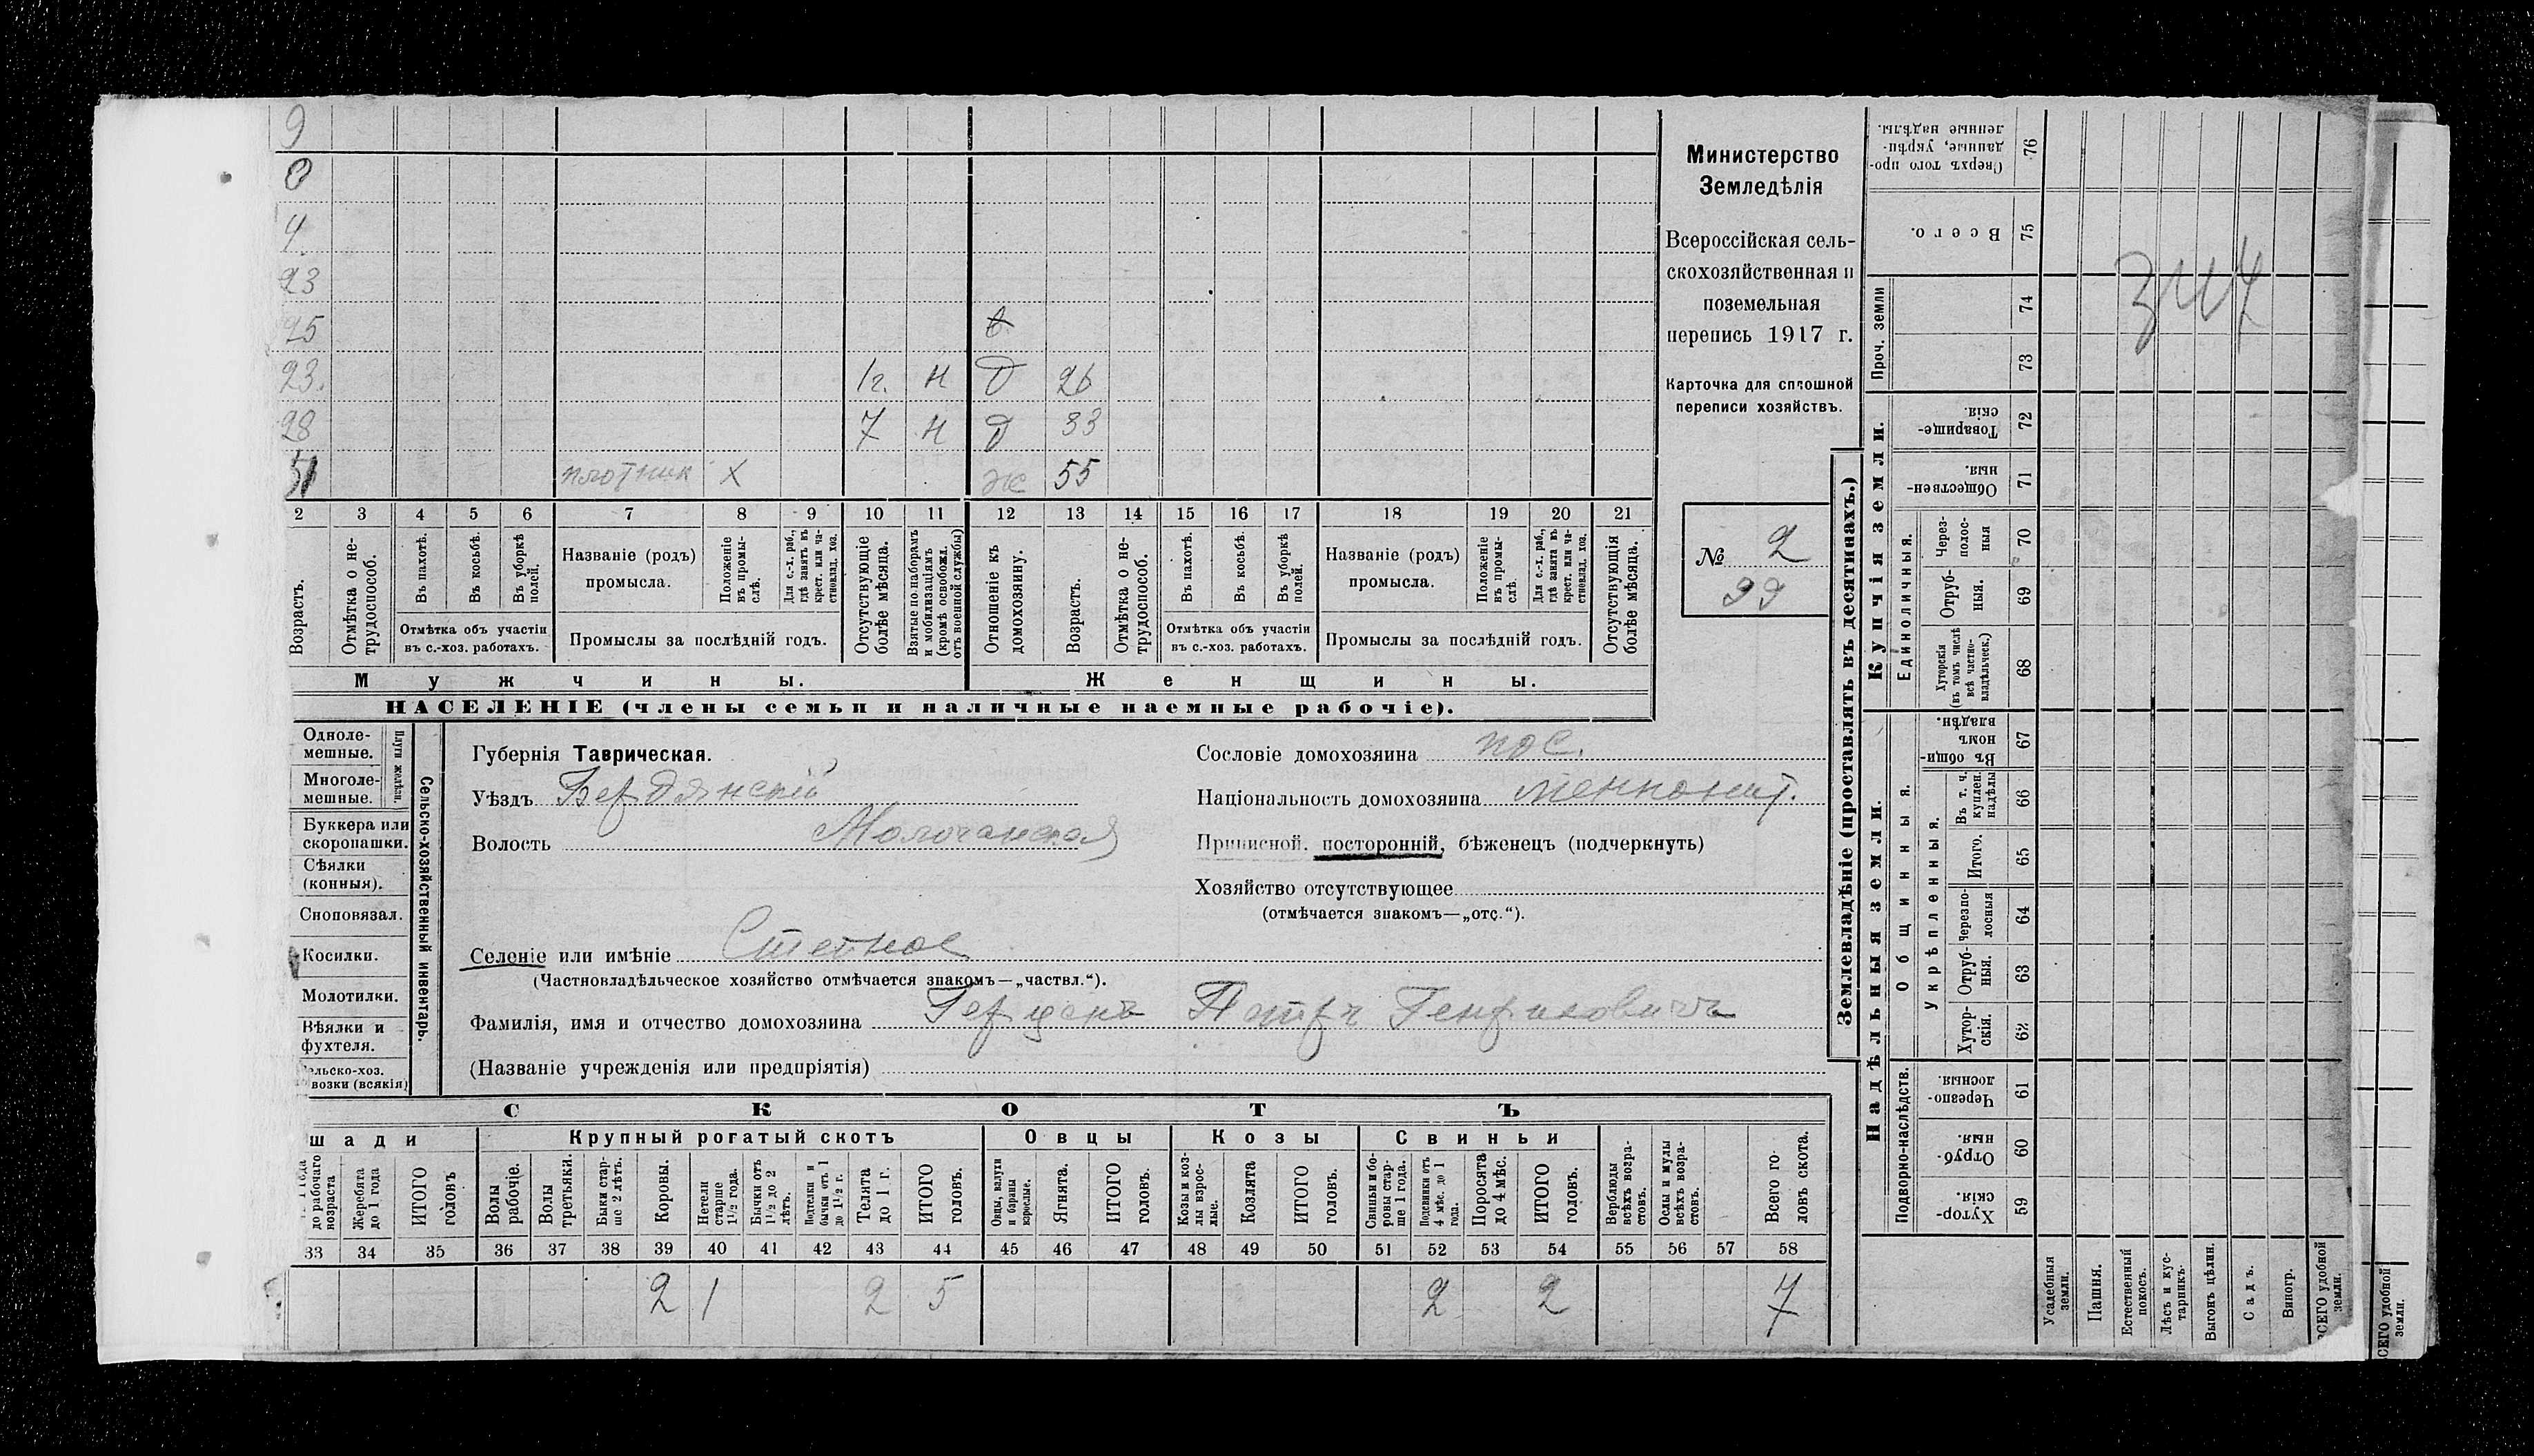 9
0
4
23
25 в
23. 1г. н д 26
28 7 н д 33
51 плотник х ж 55
2 3 4 5 6 7 8 9 10 11 12 13 14 15 16 17 18 19 20 21
Возрастъ.
Отмѣтка о не-
трудоспособ.
Въ пахотѣ.
Въ косьбѣ.
Въ уборкѣ
полей.
Отмѣтка объ участіи
въ с.-хоз. работахъ.
Названіе (родъ)
промысла.
Положеніе
въ промы-
слѣ.
Для с.-х. раб.,
гдѣ занятъ въ
крест. или ча-
стновлад. хоз.
Промыслы за послѣдній годъ.
Отсутствующіе
болѣе мѣсяца.
Взятые по наборамъ
и мобилизаціямъ
(кромѣ освобожд.
отъ военной службы)
Отношеніе къ
домохозяину.
Возрастъ.
Отмѣтка о не-
трудоспособ.
Въ пахотѣ.
Въ косьбѣ.
Въ уборкѣ
полей.
Отмѣтка объ участіи
въ с.-хоз. работахъ.
Названіе (родъ)
промысла.
Положеніе
въ промы-
слѣ.
Для с.-х. раб.,
гдѣ занята въ
крест. или ча-
стновлад. хоз.
Промыслы за послѣдній годъ.
Отсутствующія
болѣе мѣсяца.
Мужчины.
Женщины.
НАСЕЛЕНІЕ (члены семьи и наличные наемные рабочіе).
Министерство
Земледѣлія
Всероссійская сель-
скохозяйственная и
поземельная
перепись 1917 г.
Карточка для сплошной
переписи хозяйствъ.
№ 2
99
Одноле-
мешные.
Многоле-
мешные.
Плуги желѣзн.
Буккера или
скоропашки.
Сѣялки
(конныя).
Сноповязал.
Косилки.
Молотилки.
Вѣялки и
фухтеля.
возки (всякія)
Сельско-хозяйственный инвентарь.
Губернія Таврическая.
Уѣздъ Бердянскій
Волость Молочанская
Селеніе или имѣніе Степное
(Частновладѣльческое хозяйство отмѣчается знакомъ—„частвл.“).
Фамилія, имя и отчество домохозяина Герценъ Петръ Генриховичъ
(Названіе учрежденія или предпріятія)
Сословіе домохозяина пос.
Національность домохозяина меннонит.
Приписной. посторонній, бѣженецъ (подчеркнуть)
Хозяйство отсутствующее
(отмѣчается знакомъ—„отс.“).
СКОТЪ
шади
Крупный рогатый скотъ
Овцы
Козы
Свиньи
до рабочаго
возраста
Жеребята
до 1 года
ИТОГО
головъ
Волы
рабочіе.
Волы
третьяки.
Быки стар-
ше 2 лѣтъ.
Коровы.
Нетели
старше
1½ года.
Бычки отъ
1½ до 2
лѣтъ.
Подтелки и
бычки отъ 1
до 1½ г.
Телята
до 1 г.
ИТОГО
головъ.
Овцы, валухи
и бараны
взрослые.
Ягнята.
ИТОГО
головъ.
Козы и коз-
лы взрос-
лые.
Козлята
ИТОГО
головъ.
Свиньи и бо-
ровы стар-
ше 1 года.
Подсвинки отъ
4 мѣс. до 1
года.
Поросята
до 4 мѣс.
ИТОГО
головъ.
Верблюды
всѣхъ возра-
стовъ.
Ослы и мулы
всѣхъ возра-
стовъ.
Всего го-
ловъ скота.
33 34 35 36 37 38 39 40 41 42 43 44 45 46 47 48 49 50 51 52 53 54 55 56 57 58
2 1 2 5 2 2 7
Землевладѣніе (проставлять въ десятинахъ.)
Надѣльныя земли.
Купчія земли.
Проч. земли
Подворно-наслѣдств.
Общинныя.
Укрѣпленныя.
Единоличныя.
Хутор-
скія.
59
Отруб-
ныя.
60
Черезпо-
лосныя.
61
Хутор-
скія.
62
Отруб-
ныя.
63
Черезпо-
лосныя
64
Итого.
65
Въ т. ч.
куплен.
надѣлы
66
Въ общин-
номъ
владѣн.
67
Хуторскія
(въ томъ числѣ
всѣ частно-
владѣльческ.)
68
Отруб-
ныя.
69
Через-
полос-
ныя
70
Обществен-
ныя.
71
Товарище-
скія.
72
73
74
Всего.
75
Сверхъ того про-
данные, укрѣп-
ленные надѣлы.
76
Усадебныя
земли.
Пашня.
Естественный
покосъ.
Лѣсъ и кус-
тарникъ.
Выгонъ цѣлин.
Садъ.
Виногр.
ВСЕГО удобной
земли.
СЕГО удобной
земли.